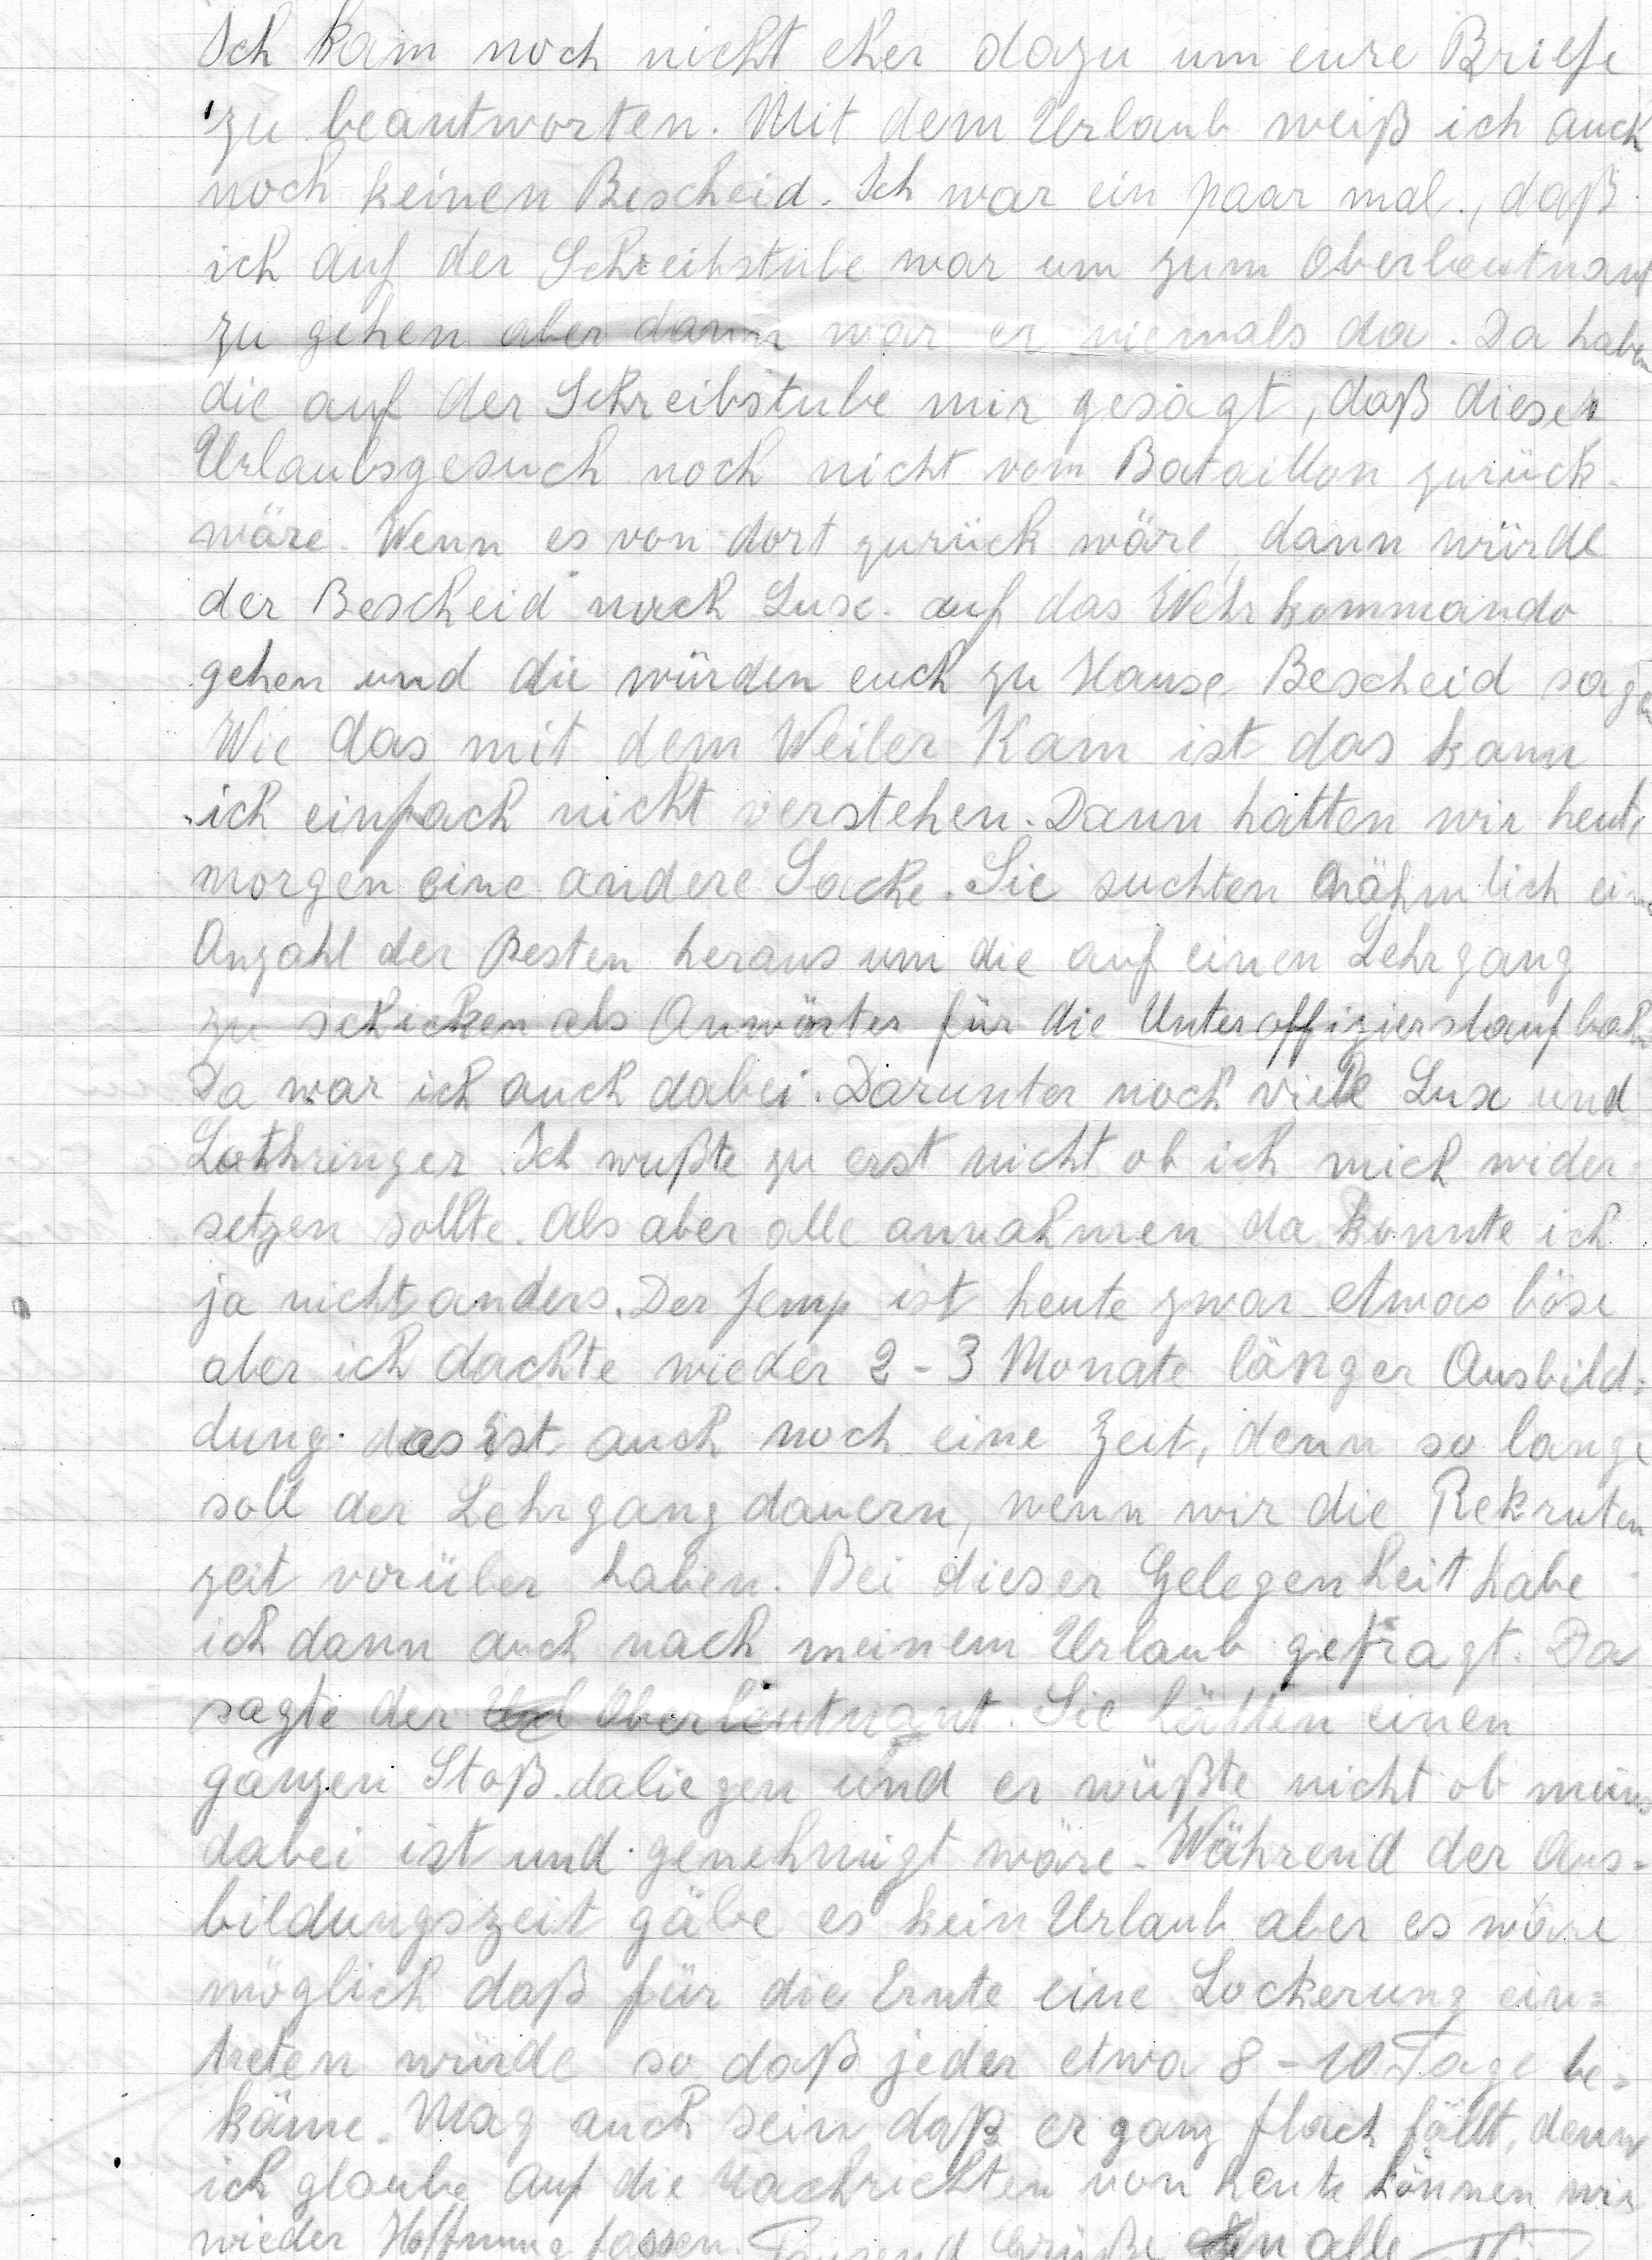 Ich kam noch nicht eher dazu um eure Briefe
zu beantworten. Mit dem Urlaub weiß ich auch
noch keinen Bescheid. Ich war ein paar mal, daß
ich auf der Schreibstube war um zum Oberleutnant
zu gehen aber dann war er niemals da. Da haben
die auf der Schreibstube mir gesagt, daß dieses
Urlaubsgesuch noch nicht vom Bataillon zurück-
wäre. Wenn es von dort zurück wäre, dann würde
der Bescheid nach Lux. auf das Wehrkommando
gehen und die würden euch zu Hause Bescheid sagen
Wie das mit dem Weiler Kam ist das kann
ich einfach nicht verstehen. Dann hatten wir heute
morgen eine andere Sache. Sie suchten nähmlich eine
Anzahl der Besten heraus um die auf einen Lehrgang
zu schicken als Anwärter für die Unteroffizierslaufbahn
Da war ich auch dabei. Darunter noch viele Lux und
Lothringer. Ich wußte zu erst nicht ob ich mich wider-
setzen sollte. Als aber alle annahmen da konnte ich
ja nicht anders. Der Jemp ist heute zwar etwas böse
aber ich dachte wieder 2-3 Monate länger Ausbild=
dung das ist auch noch eine Zeit, denn so lange
soll der Lehrgang dauern, wenn wir die Rekruten
zeit vorüber haben. Bei dieser Gelegenheit habe
ich dann auch nach meinem Urlaub gefragt. Da
sagte der Oberleutnant. Sie hätten einen
ganzen Stoß daliegen und er wüßte nicht ob meins
dabei ist und genehmigt wäre. Während der Aus=
bildungszeit gäbe es kein Urlaub aber es wäre
möglich daß für die Ernte eine Lockerung ein=
treten würde so daß jeder etwa 8-10 Tage be=
käme. Mag auch sein daß er ganz flach fällt, denn
ich glaube auf die Nachrichten von heute können wir
wieder Hoffnung fassen. Tausend Grüße an alle